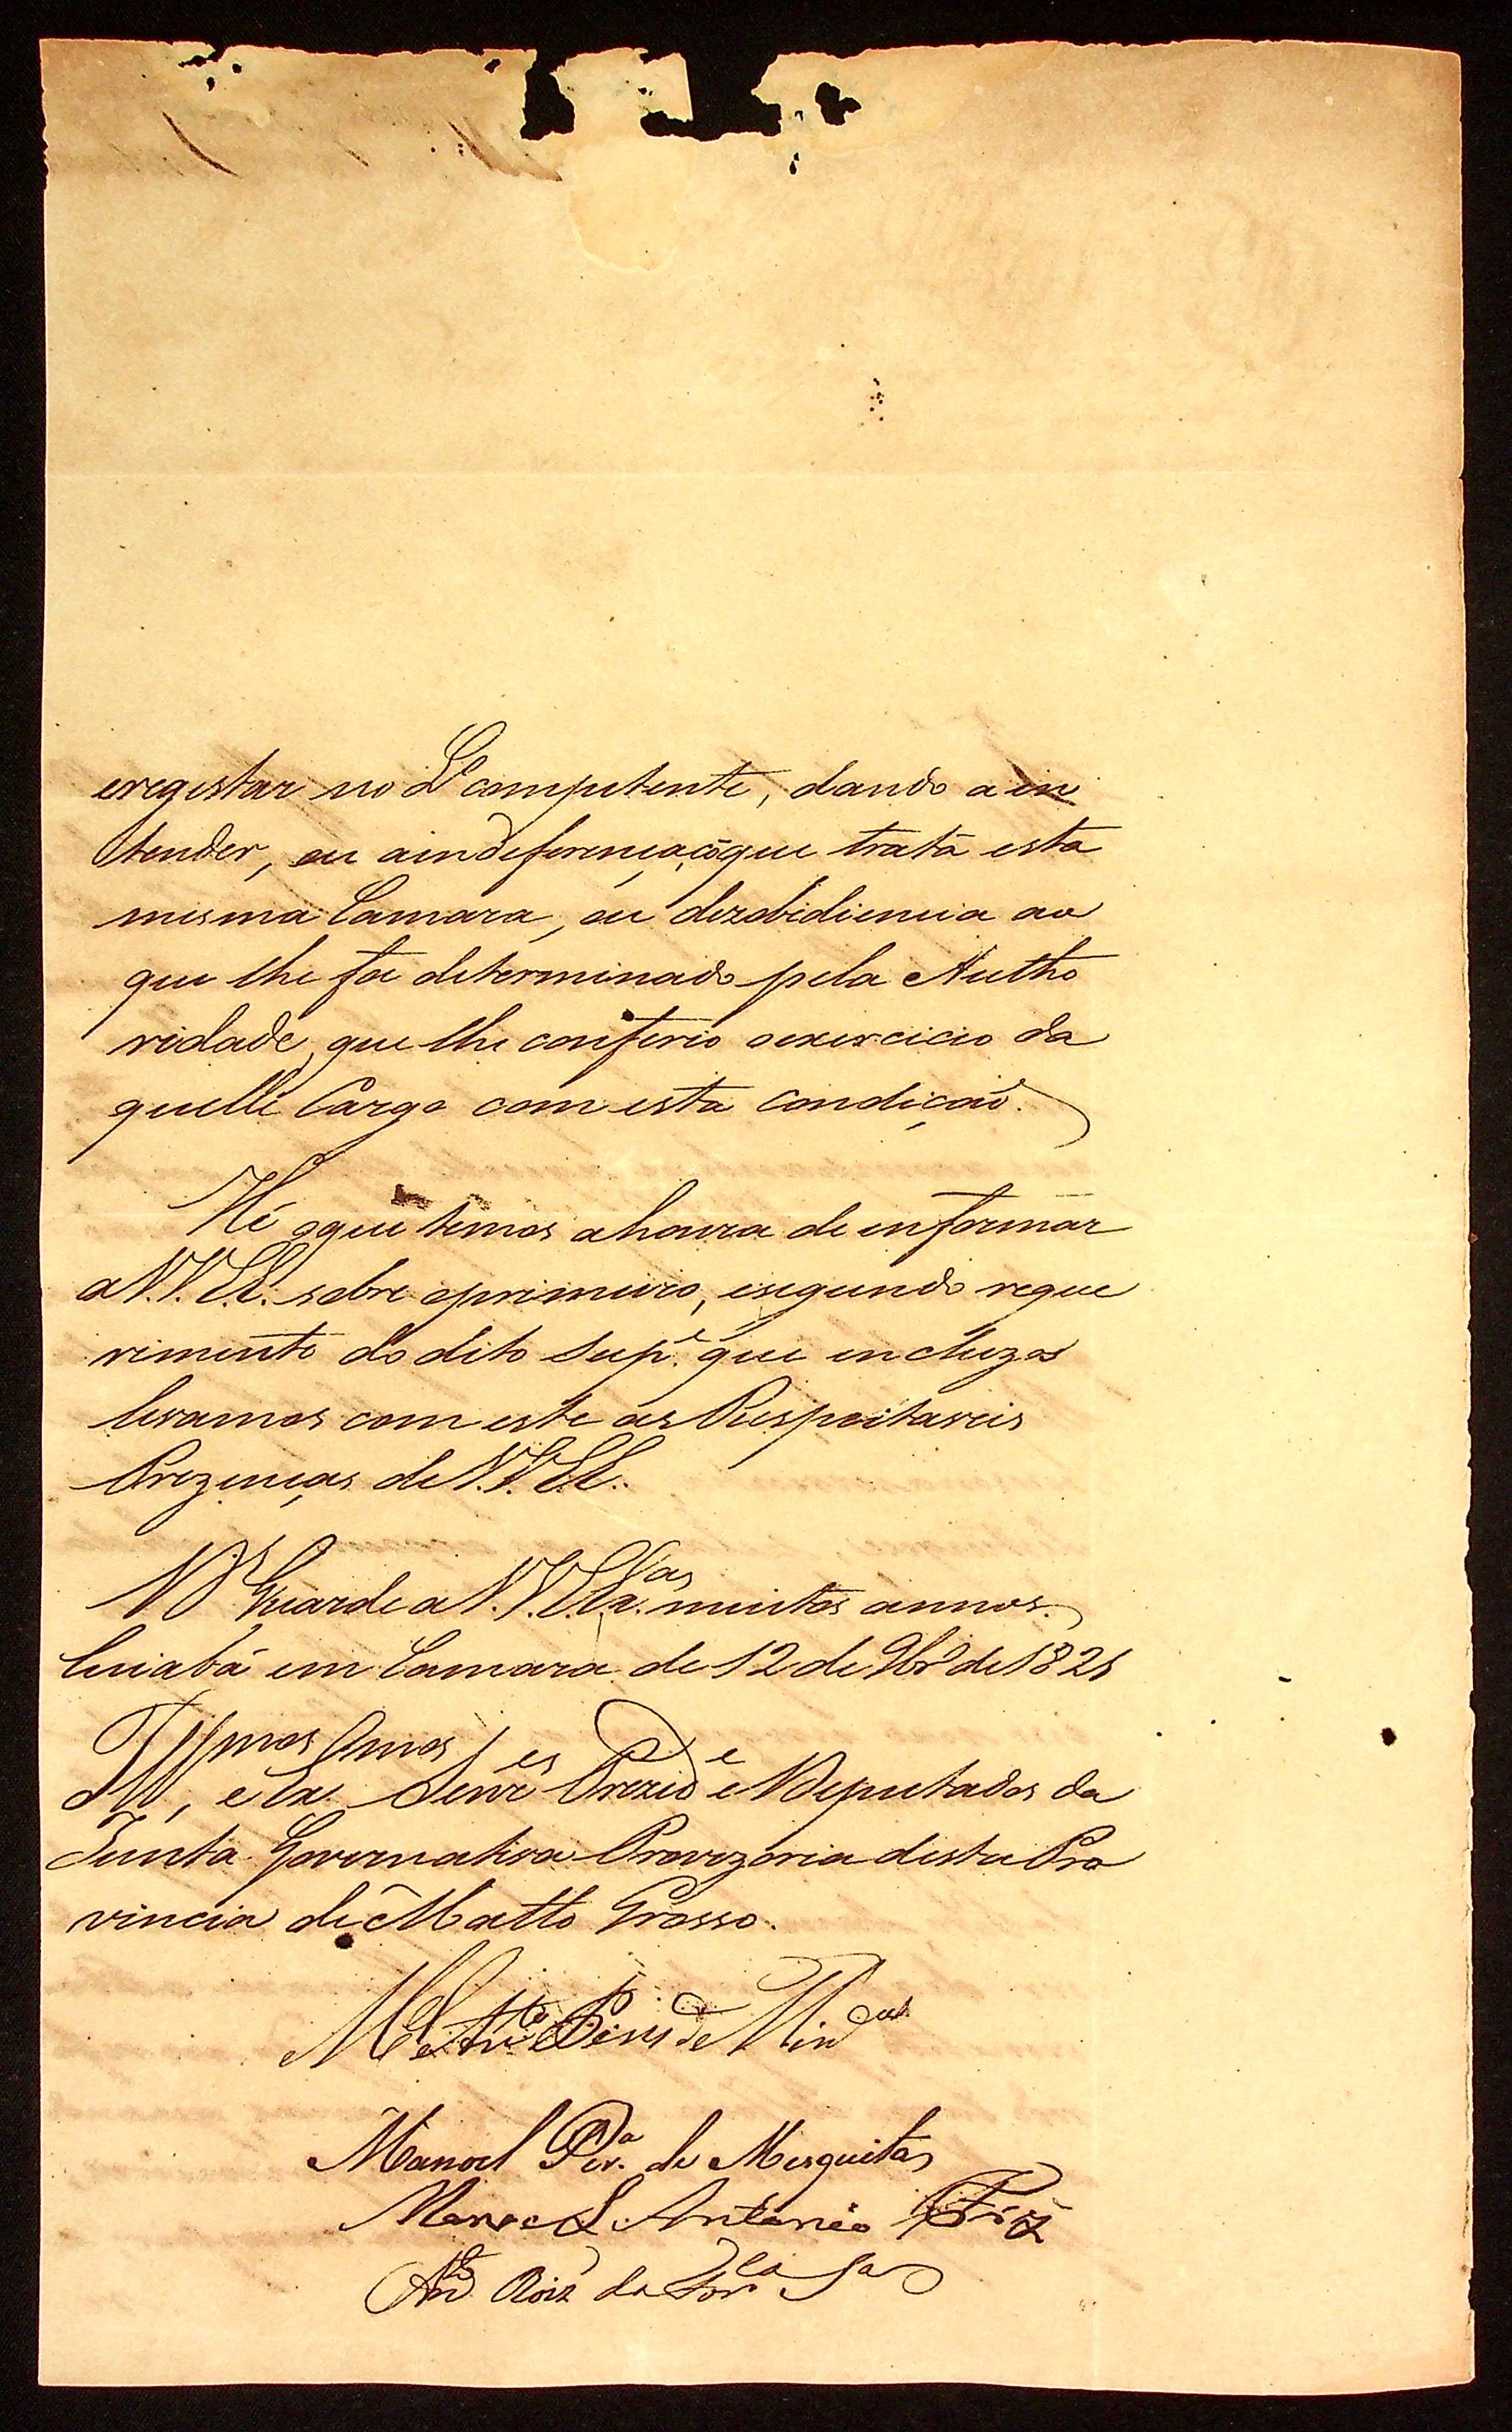 eregistar no Lº competente, dando a in
tender, ou aindeferença cõ que trata esta
mesma Camara, ou dezobidiencia ao
que lhe foi determinado pela Autho
ridade, que lhe conferio oexercicio da
quelle Cargo com esta condição.
Hé oque temos ahonra de informar
a V.V. E.E. sobre oprimeiro, esegundo reque
rimento do dito Supe. que incluzos
levamos com este as Respeitaveis
Prezenças de V.V. E.E.
Ds Guarde a V.V. E.Exas. muitos annos.
Cuiabá em Camara de 12 de 9br de 1821
Illmos, e Exmos Senres Prezide e Deputados da
Junta Governativa Provizoria desta Pro
vincia de Matto Grosso.
Pires de
Manoel Pera. de Mesquita
Manoel Antonio
Anto Roiz da